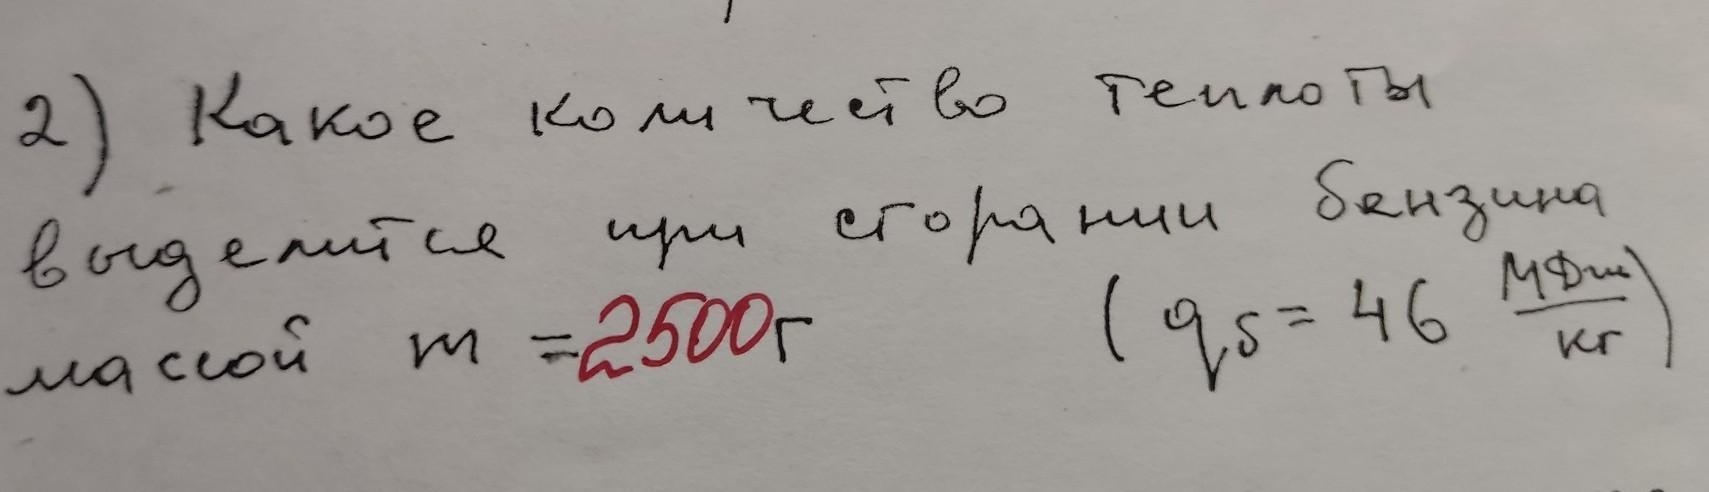 2) Какое количество теплоты
выделится при сгорании бензина
массой m = 2500г (qб = 46 МДж/кг)